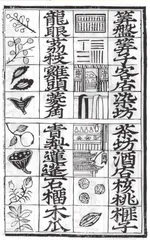 筭盤筭子客店染坊
茶坊酒店核桃榧子
龍眼荔枝雞頭菱角
青梨蓮蓬石榴木瓜